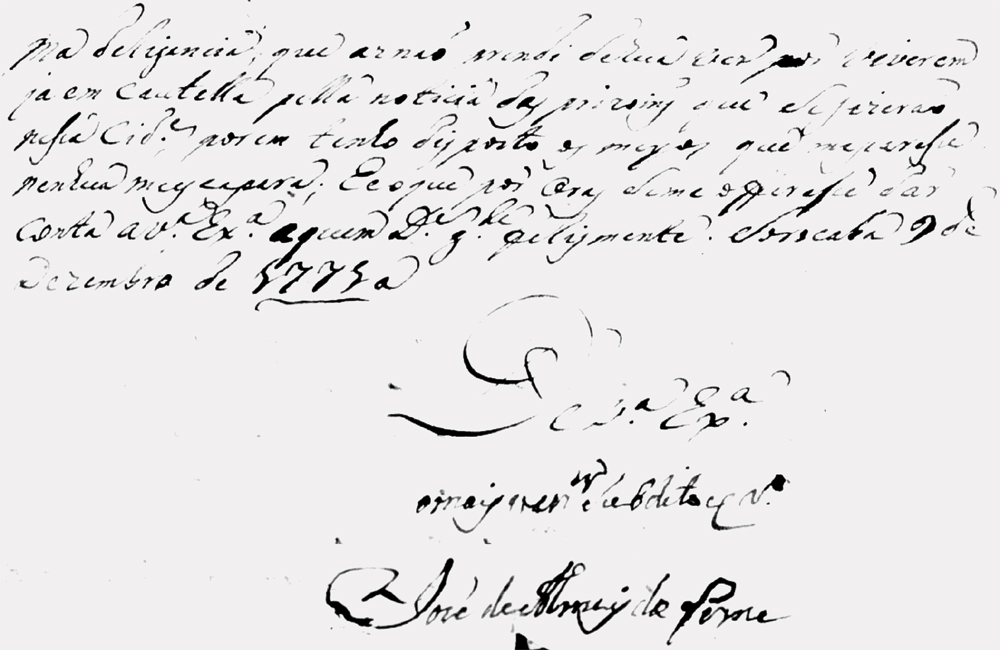 ma deligencia, que as naó prendi de hua vez por viverem
ja em Cautella pella noticia das prizoins que se fizerao
nesta Cid.e, porem tenho disposto os meyos que me parese
nenhua me escapara; He o que por óra se me offerese dar
conta a V.a Ex.a aquem D.s g.e felismente. Sorocaba 9 de
Dezembro de 1775 a
De V.a Ex.a
o mais ven.or e subdito
José de Almeyda Leme